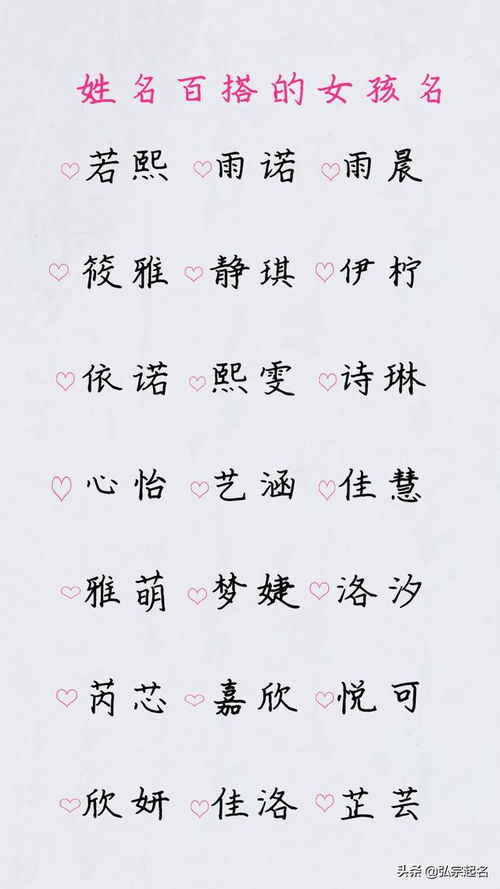 姓名百搭的女孩名
♡若熙 ♡雨诺 ♡雨晨
♡筱雅 ♡静琪 ♡伊柠
♡依诺 ♡熙雯 ♡诗琳
♡心怡 ♡艺涵 ♡佳慧
♡雅萌 ♡梦婕 ♡洛汐
♡芮芯 ♡嘉欣 ♡悦可
♡欣妍 ♡佳洛 ♡芷芸
头条 @弘宗起名